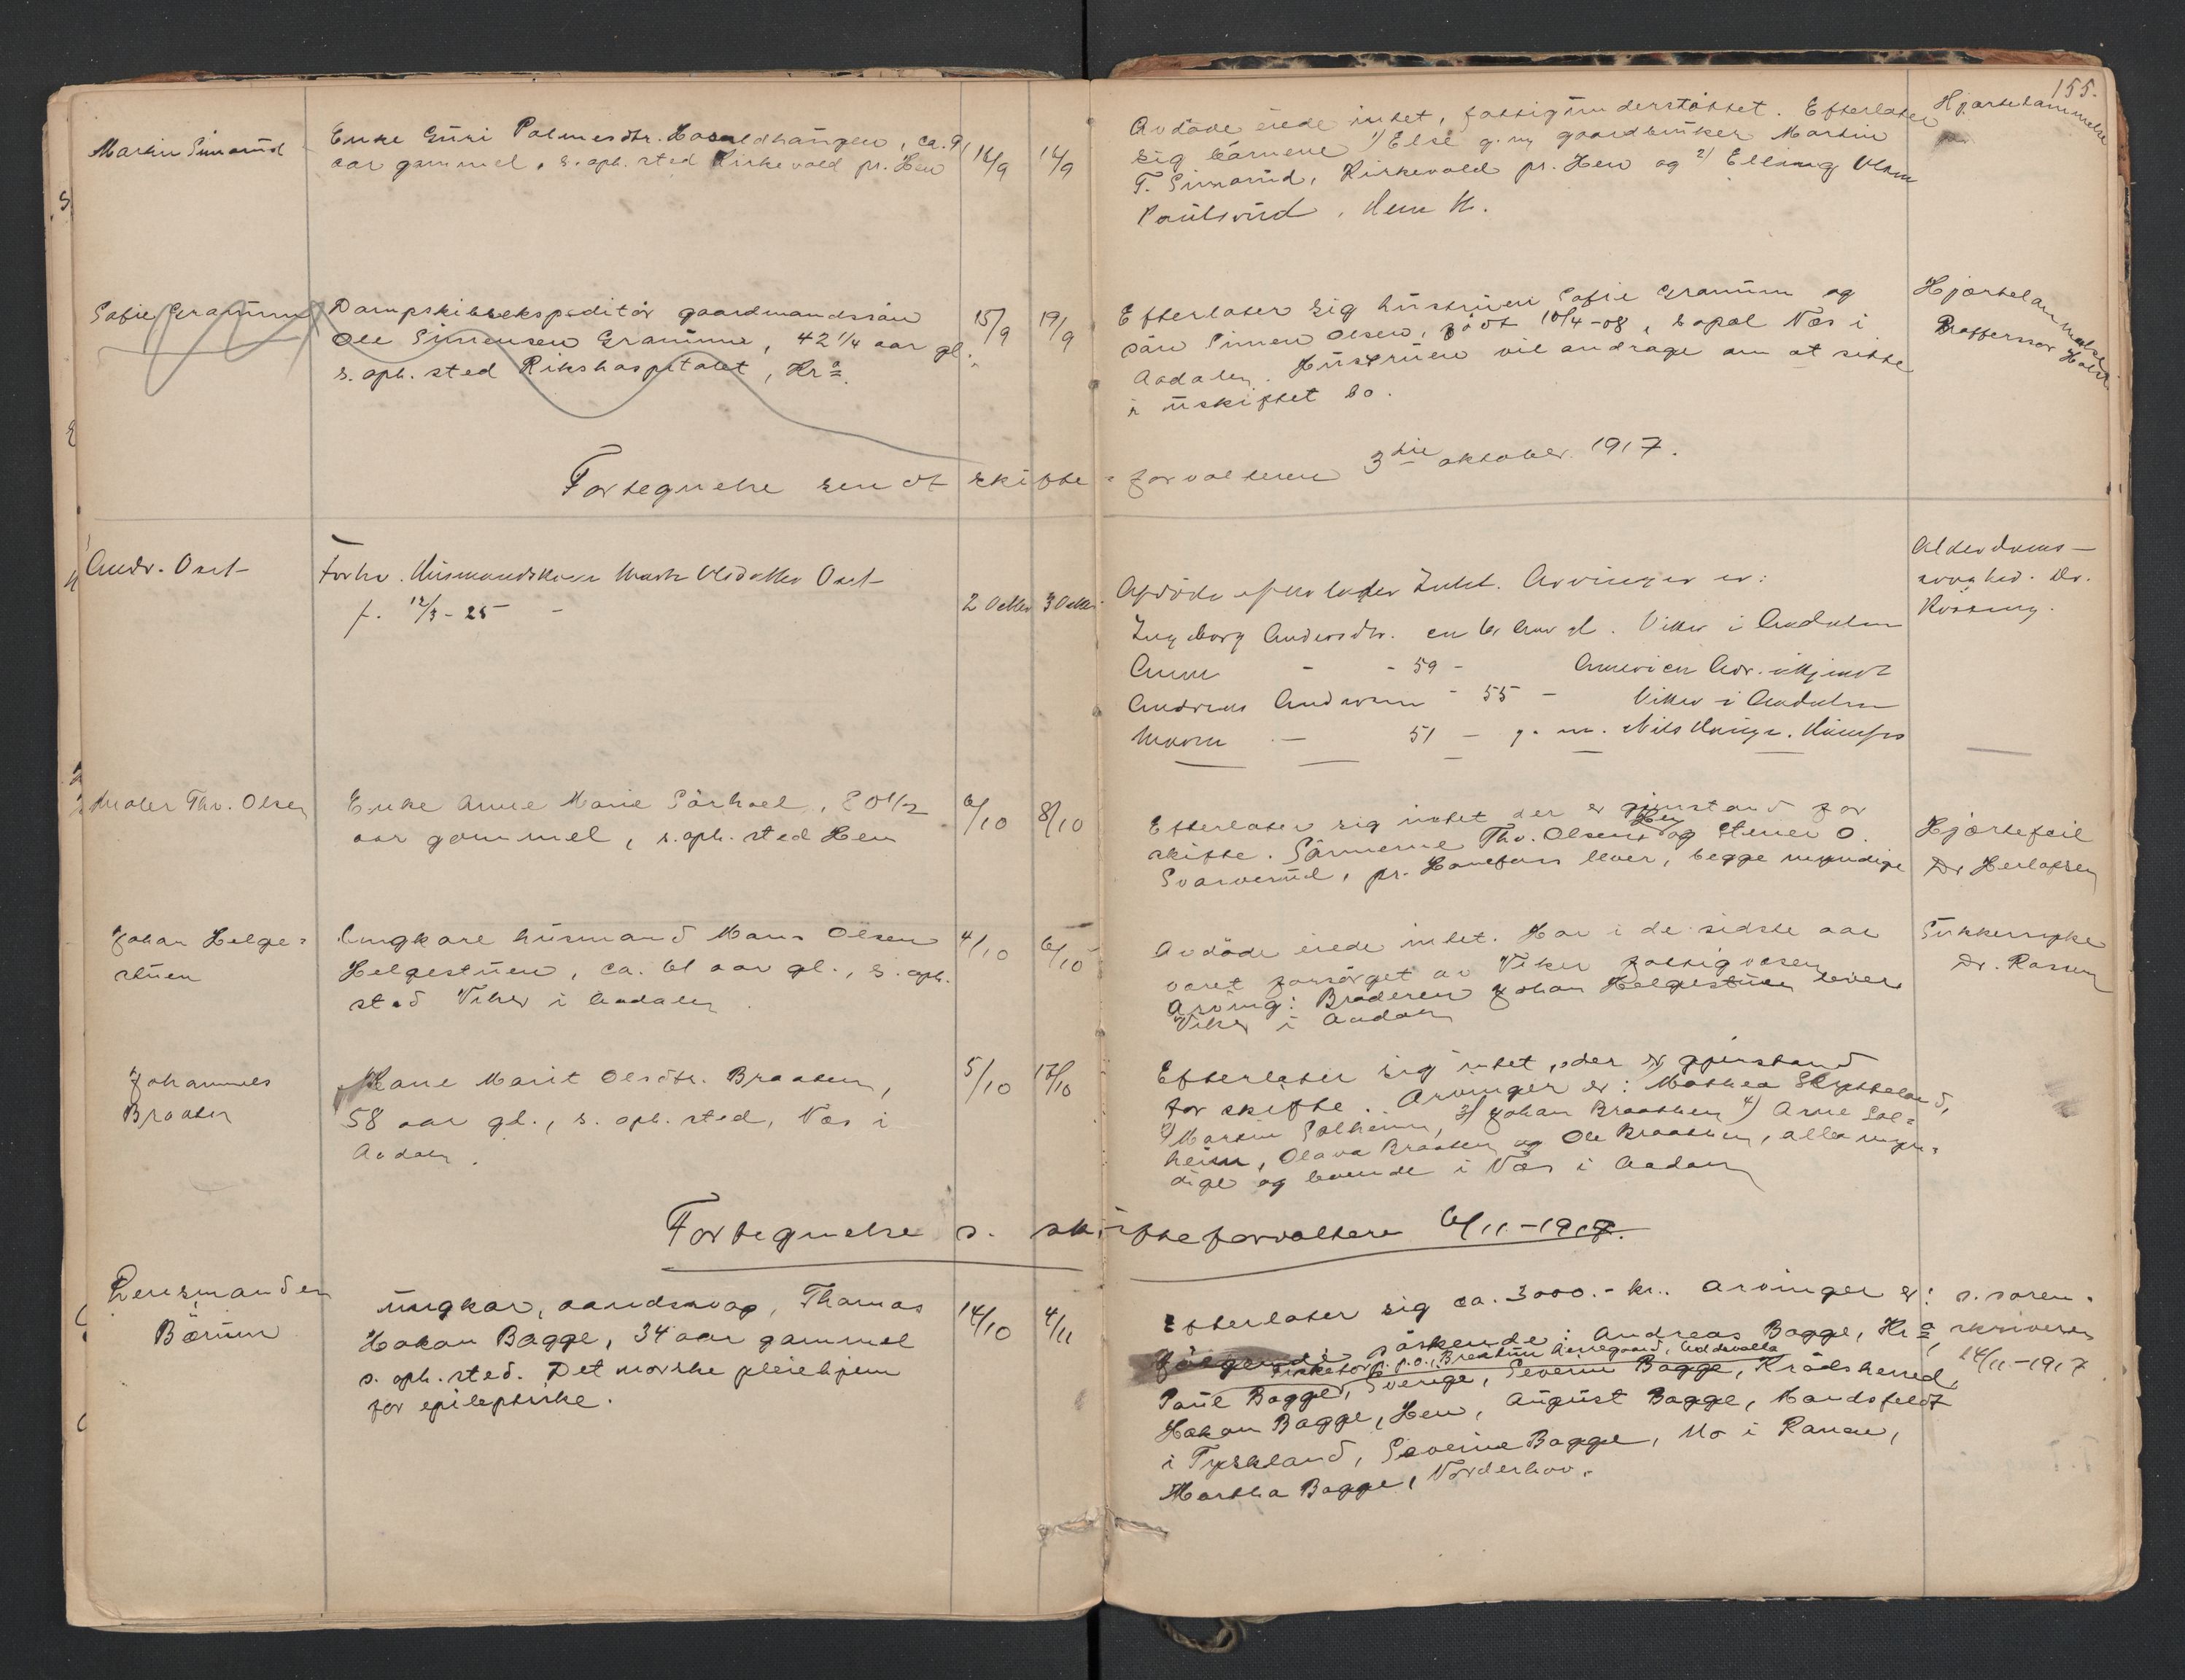 155.
Martin Simarud
Enke Guri Palmesdtr. Haraldhaugen, ca. 91
aar gammel, s. oph. sted Kirkevold pr. Hen
14/9
14/9
Avdöde eiede intet, fattigunderstöttet. Efterlater
sig börnene 1) Else g. m gaardbruker Martin
T. Simarud, Kirkevold pr. Hen og 2) Elling Olsen
Paulsrud, Hen st.
Hjertelammelse
Sofie Granum
Dampskibsekspeditör gaardmandssön
Ole Simensen Granum, 42 1/4 aar gl.
s. oph. sted Rikshospitalet, Kr.a
15/9
19/9
Efterlater sig hustruen Sofie Granum og
sön Simen Olsen, födt 10/4-08, bopæl Næs i
Aadalen. Hustruen vil andrage om at sitte
i uskiftet bo.
Hjertelammelse
Proffersor Holst
Fortegnelse sendt skifte-forvalteren 3die oktober 1917.
Andr. Oset
Forhv. Husmandskone Marte Olsdatter Oset
f. 12/3-25 -
2 Octbr 3 Octbr.
Afdöde efterlader Intet. Arvinger er:
Ingeborg Andersdtr. en 61 Aar gl. Viker i Aadalen
Anne - - 59 - America Adr. ukjendt
Andreas Andersen - 55 - Viker i Aadalen
Maren - 51 - g. m. Nils Hauge. Hönefos
Alderdoms-
svaghed. Dr.
Maler Thv. Olsen
Enke Anne Marie Sörhoel, 80 1/2
aar gammel, s. oph. sted Hen
6/10
8/10
Efterlater sig intet der er gjenstand for
skifte. Sönnerne Thv. Olsen, Hen og Stener O.
Svarverud, pr. Hönefoss lever, begge myndige
Hjertefeil
Dr Herlofsen
Johan Helge=
stuen
Ungkare husmand Hans Olsen
Helgestuen, ca. 61 aar gl., s. oph.
sted Viker i Aadalen.
4/10
6/10
Avdöde eiede intet. Har i de sidste aar
været forsörget av Viker fattigvæsen
Arving: Broderen Johan Helgestuen lever
Viker i Aadalen
Sukkersyke
Dr.
Johannes
Braaten
Kone Marit Olsdtr. Braaten,
58 aar gl., s. oph. sted, Næs i
Aadalen.
5/10
17/10
Efterlater sig intet, der er gjenstand
for skifte. Arvinger er: Mathea Skytteland,
2) Martin Solheim, 3) Johan Braathen 4) Arne Sol=
heim, Olava Braaten og Ole Braathen, alle myn=
dige og boende i Næs i Aadalen
Fortegnelse s. skifteforvaltere 6/11-1917.
Lensmanden
Bærum
Ungkar, aandssvag, Thomas
Hakon Bagge, 34 aar gammel
s. oph. sted. Det norske pleiehjem
for epileptiske.
14/10
4/11
Efterlater sig ca. 3000.- kr.. Arvinger er:
fölgende söskende: Andreas Bagge, Kr.a,
Paul Bagge, Sverige, Severin Bagge, Krödsherred,
Hakon Bagge, Hen, August Bagge, Mandsfeldt
i Tyskland, Severine Bagge, Mo i Ranen,
Martha Bagge, Norderhov.
s. soren-
skriveren
14/11-1917